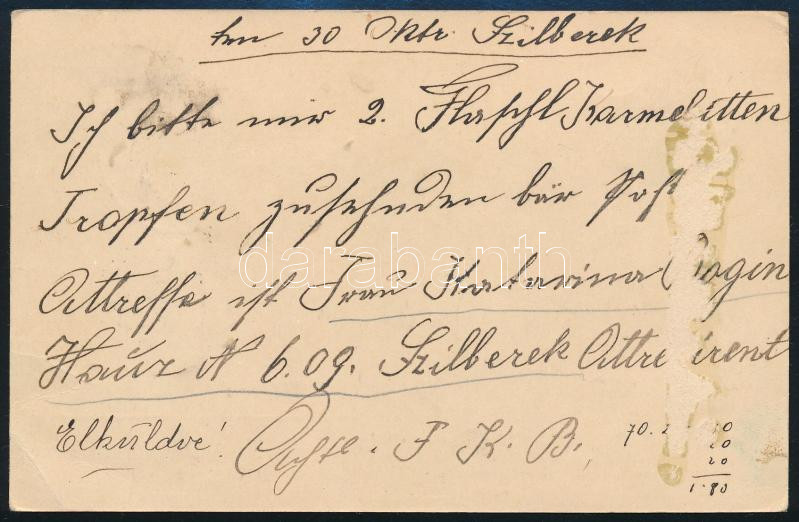 den 30 Oktr. Szilberek
Ich bitte mir 2. Flaschl Karmelitten
Tropfen zusehnden bär Post
Attresse ist Frau Katarina
Hauz N 6.09. Szilberek
Elküldve! F K. B.
70.
20
20
1.80
darabanth